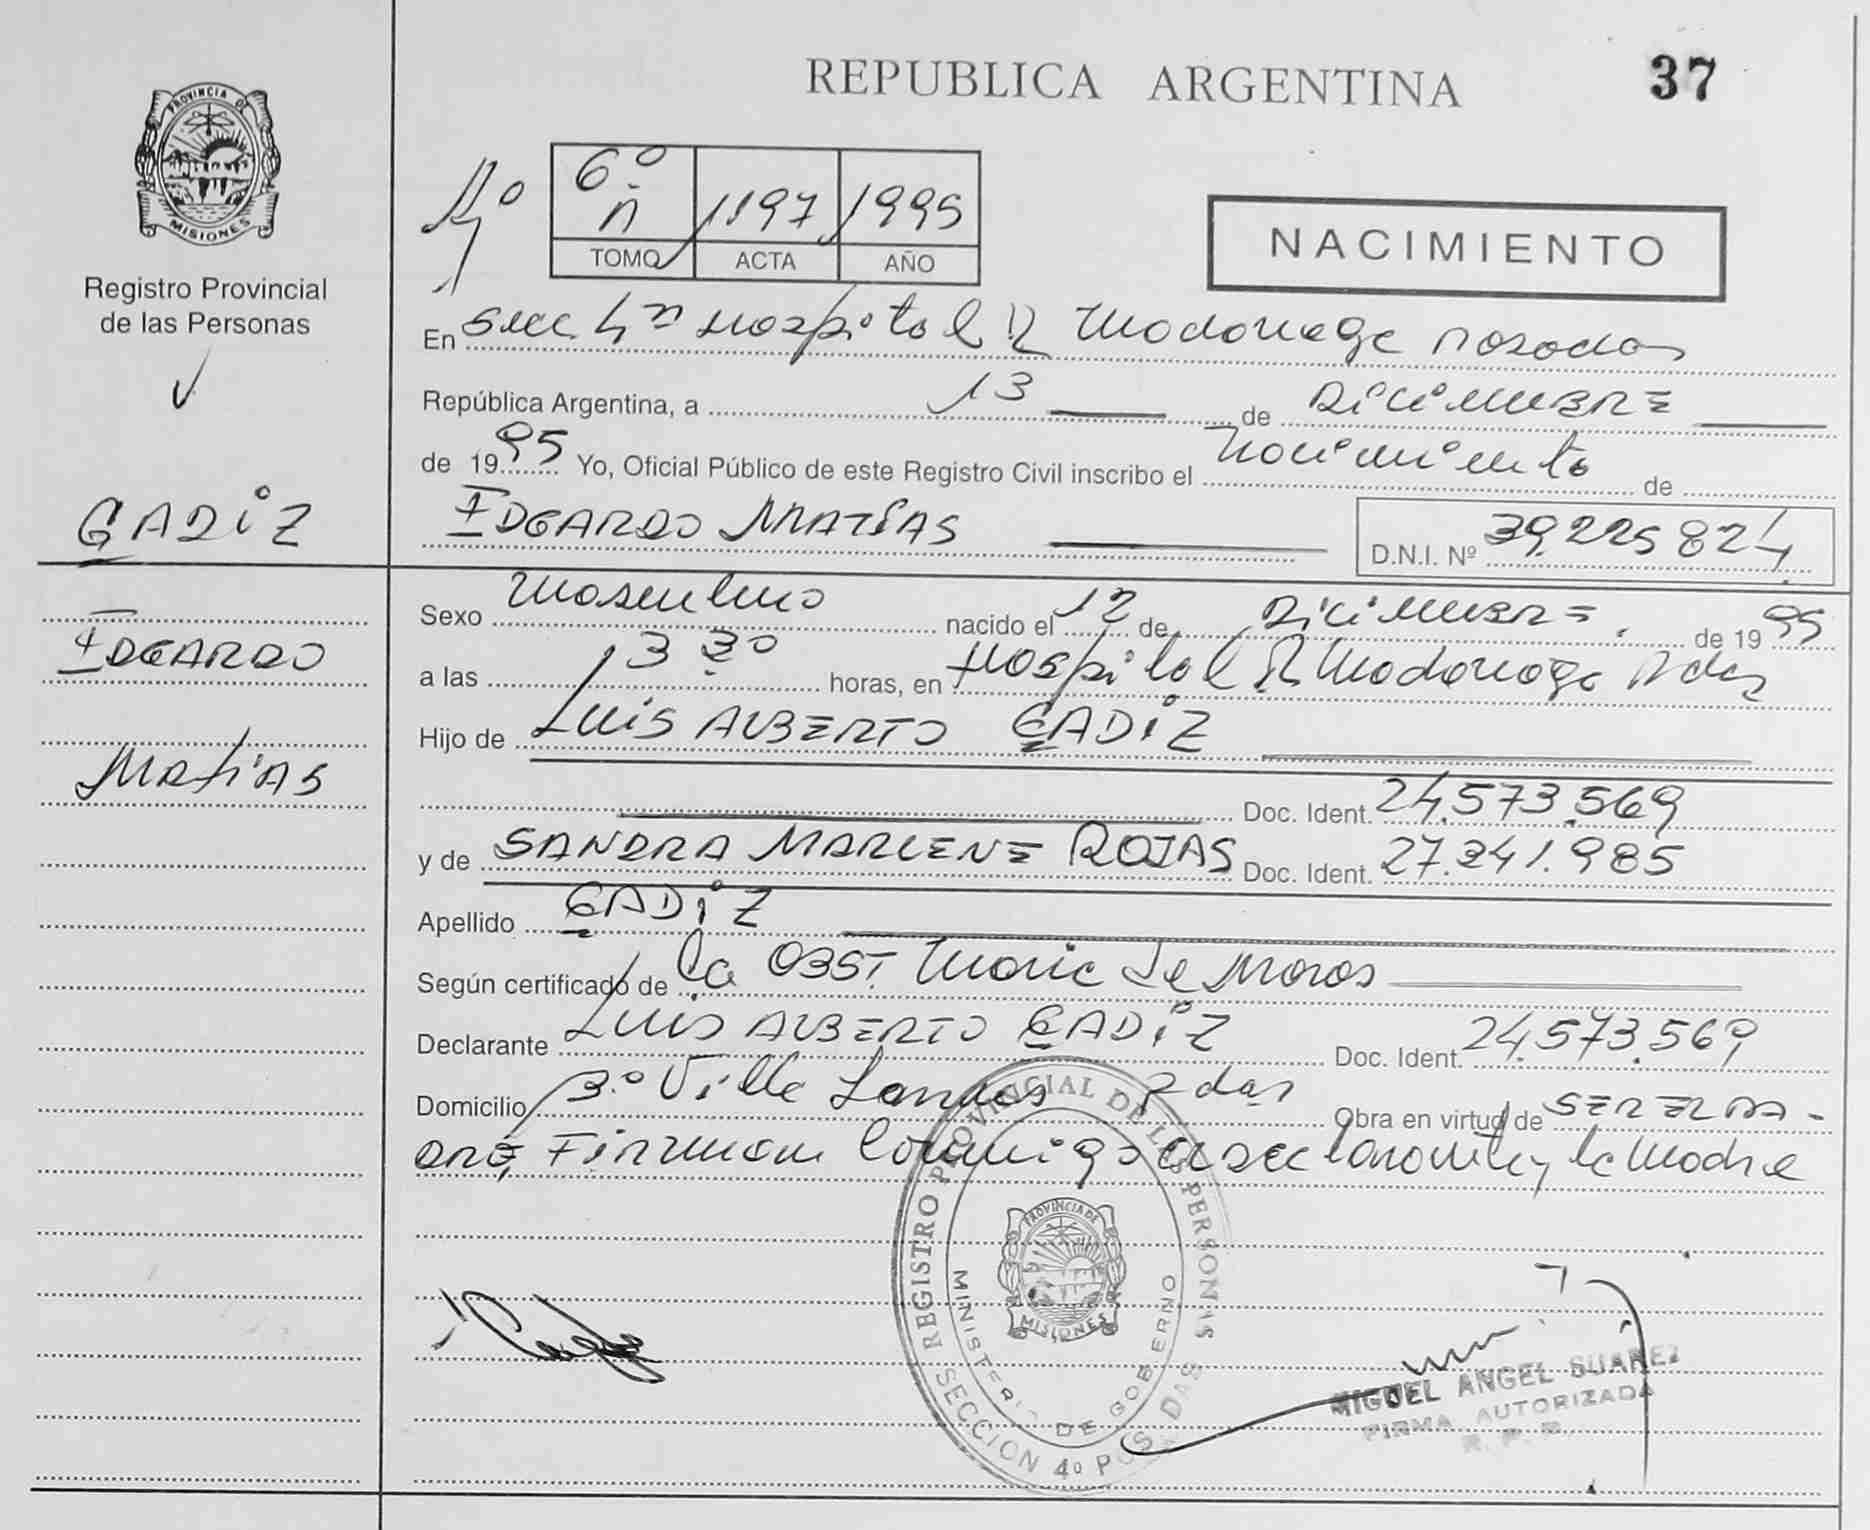 REPUBLICA ARGENTINA
37
PROVINCIA DE
MISIONES
Registro Provincial
de las Personas
4º
6º 1197 1995
TOMO ACTA AÑO
NACIMIENTO
En Secc 4ta Hospital R Madariaga Posadas
República Argentina, a 13 de DICIEMBRE
de 1995 Yo, Oficial Público de este Registro Civil inscribo el nacimiento de
EDGARDO MATIAS D.N.I. Nº 39.225.824
CADIZ
EDGARDO
Matias
Sexo Masculino nacido el 12 de DICIEMBRE de 1995
a las 13 30 horas, en Hospital R Madariaga Pdas
Hijo de LUIS ALBERTO CADIZ
Doc. Ident. 24.573.569
y de SANDRA MARLENE ROJAS Doc. Ident. 27.241.985
Apellido CADIZ
Según certificado de la OBST. Maria de Moros
Declarante LUIS ALBERTO CADIZ Doc. Ident. 24.573.569
Domicilio Bº Villa Pdas Obra en virtud de SER EL PA-
DRE, Firman conmigo el declarante y la Madre
REGISTRO PROVINCIAL DE LAS PERSONAS
MINISTERIO DE GOBIERNO
PROVINCIA DE
MISIONES
SECCION 4º POSADAS
MIGUEL ANGEL SUAREZ
FIRMA AUTORIZADA
R. P. P.